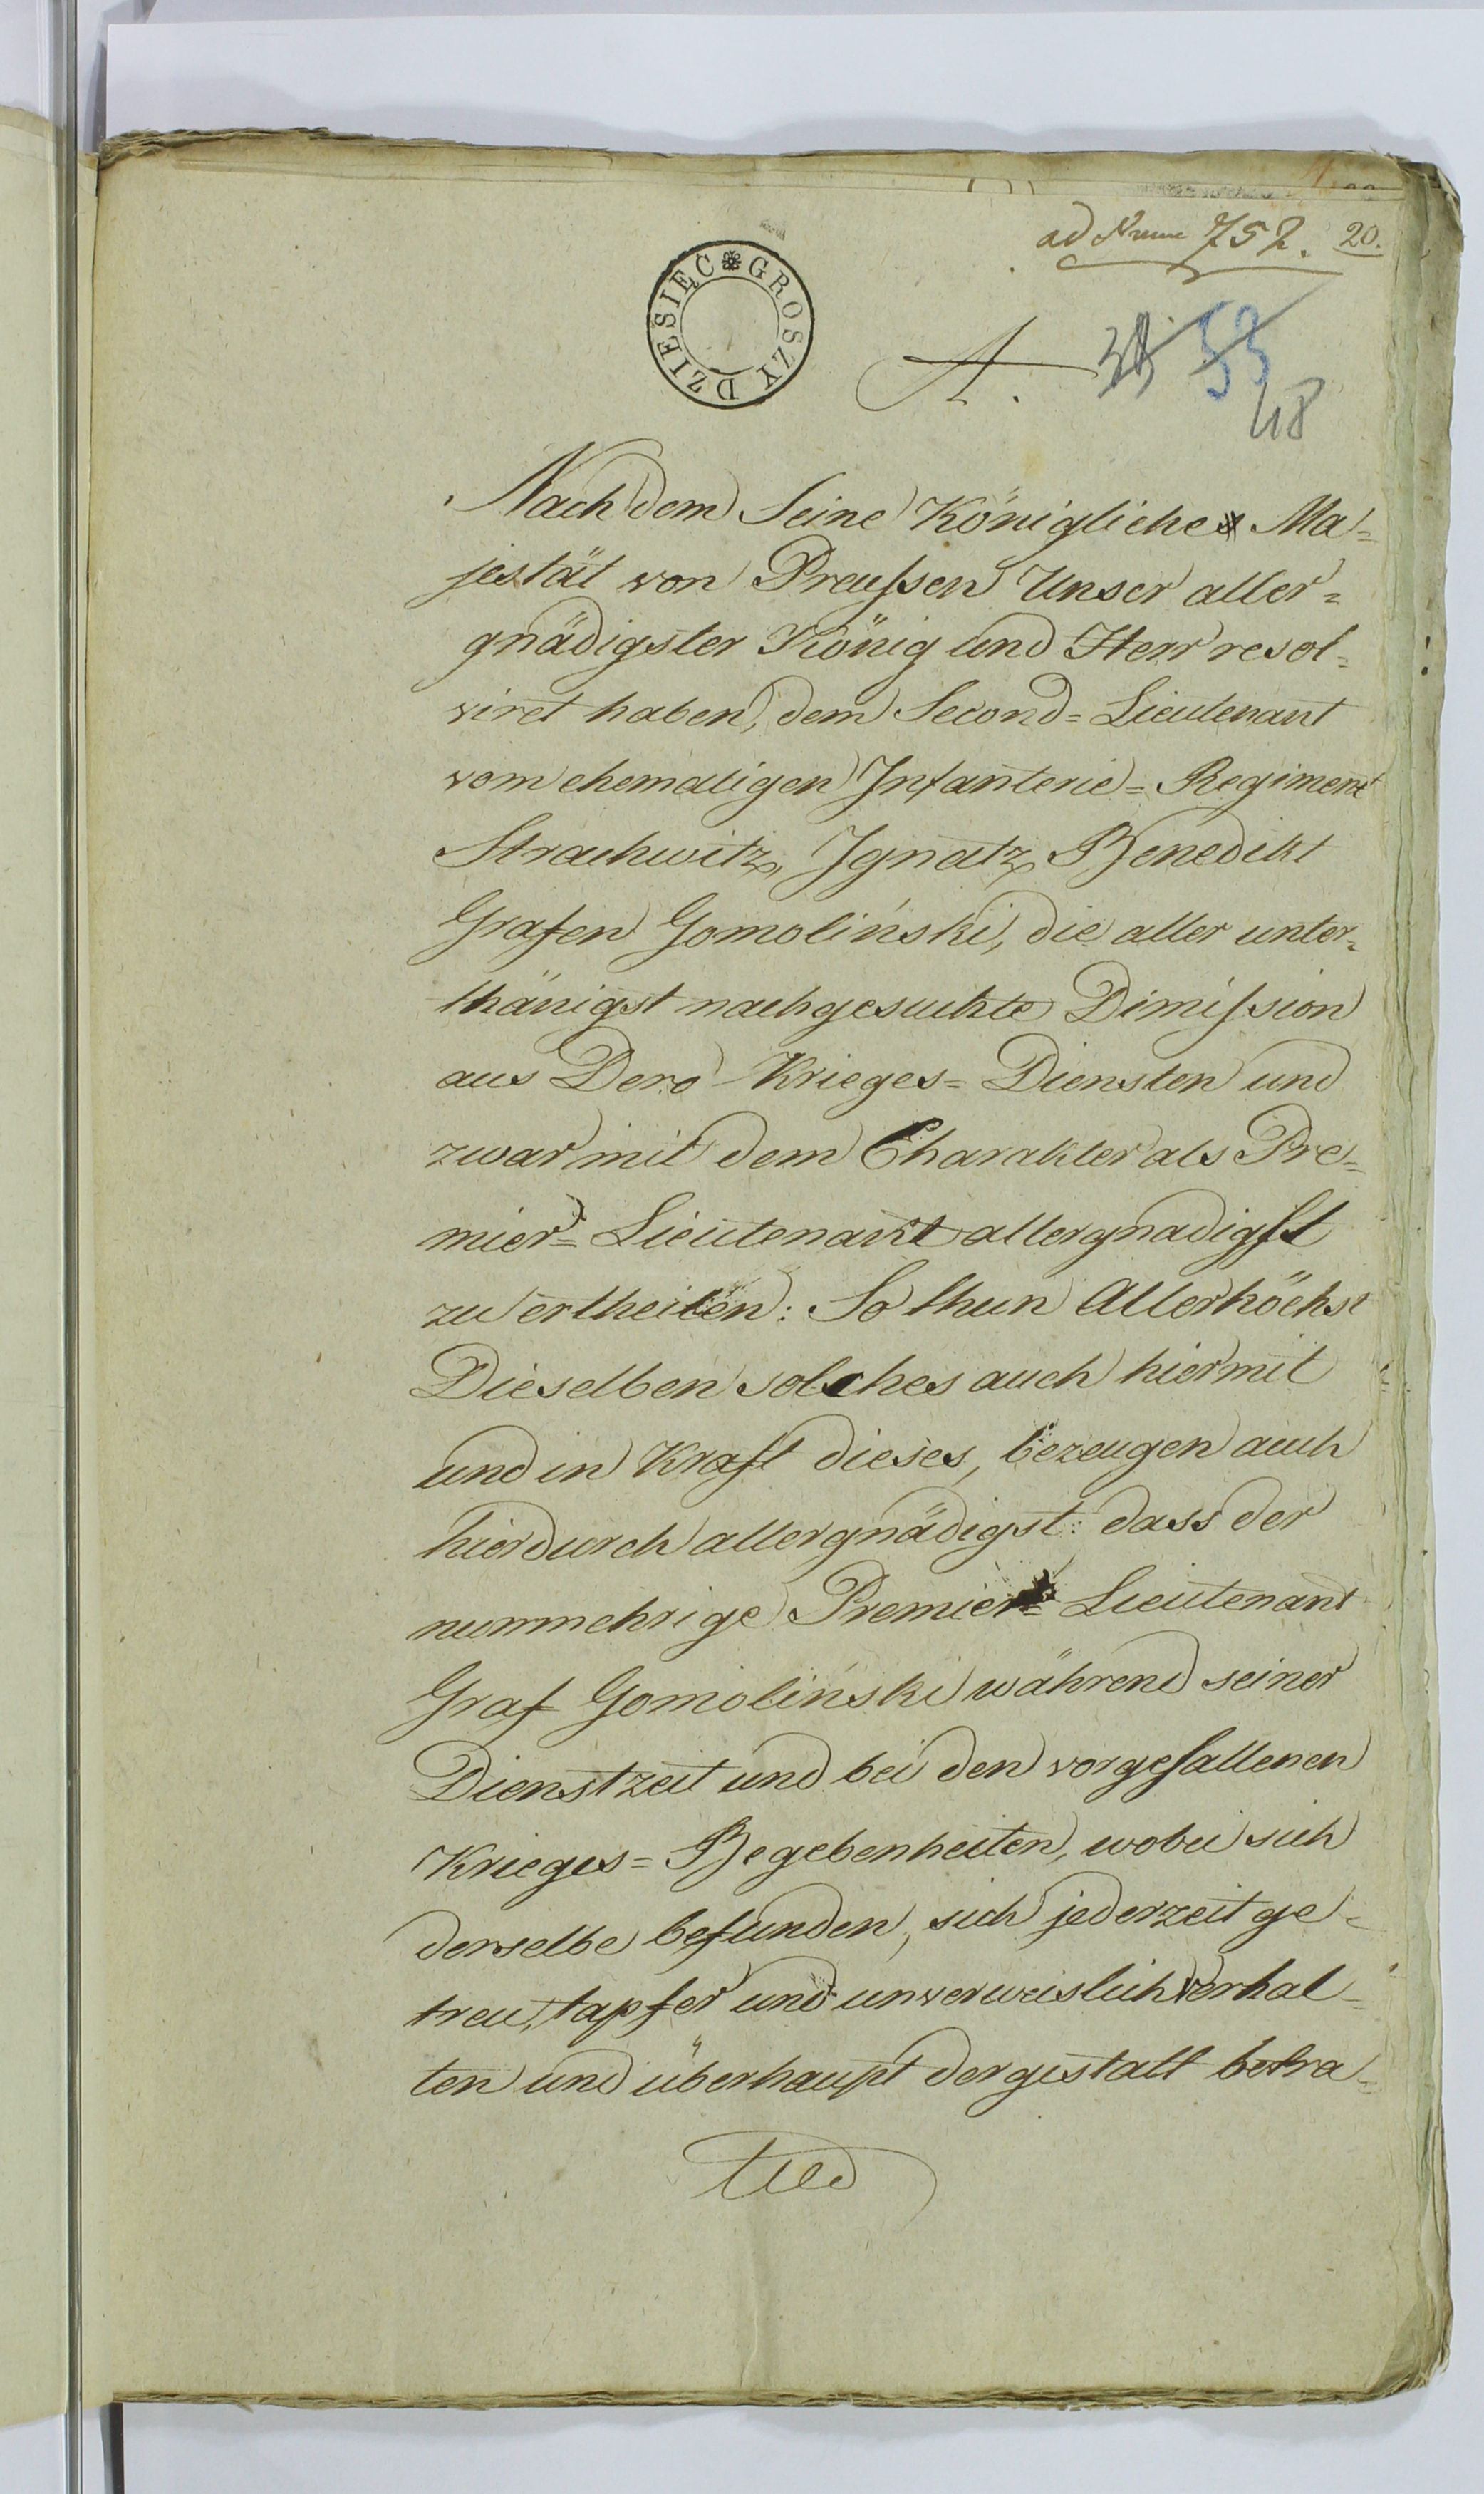 ad Nrum 752. 20.
DZIESIĘĆ GROSZY
A. 53
48
Nachdem Seine Königliche Ma=
jestät von Preussen Unser aller=
gnädigster König und Herr resol=
viret haben, dem Second=Lieutenant
vom ehemaligen Infanterie=Regiment
Strachwitz, Ignatz Benedikt
Grafen Gomoliński, die aller unter=
thänigst nachgesuchte Dimission
aus Dero Krieges=Diensten und
zwar mit dem Charakter als Pre=
mier=Lieutenant allergnadigst
zu ertheilen: So thun Allerhöchst
Dieselben solches auch hiermit
und in Kraft dieses, bezeugen auch
hierdurch allergnädigst: dass der
nunmehrige Premier=Lieutenant
Graf Gomoliński während seiner
Dienstzeit und bei den vorgefallenen
Krieges=Begebenheiten, wobei sich
derselbe befunden, sich jederzeit ge=
treu, tapfer und unverweislich verhal=
ten und überhaupt dergestalt betra=